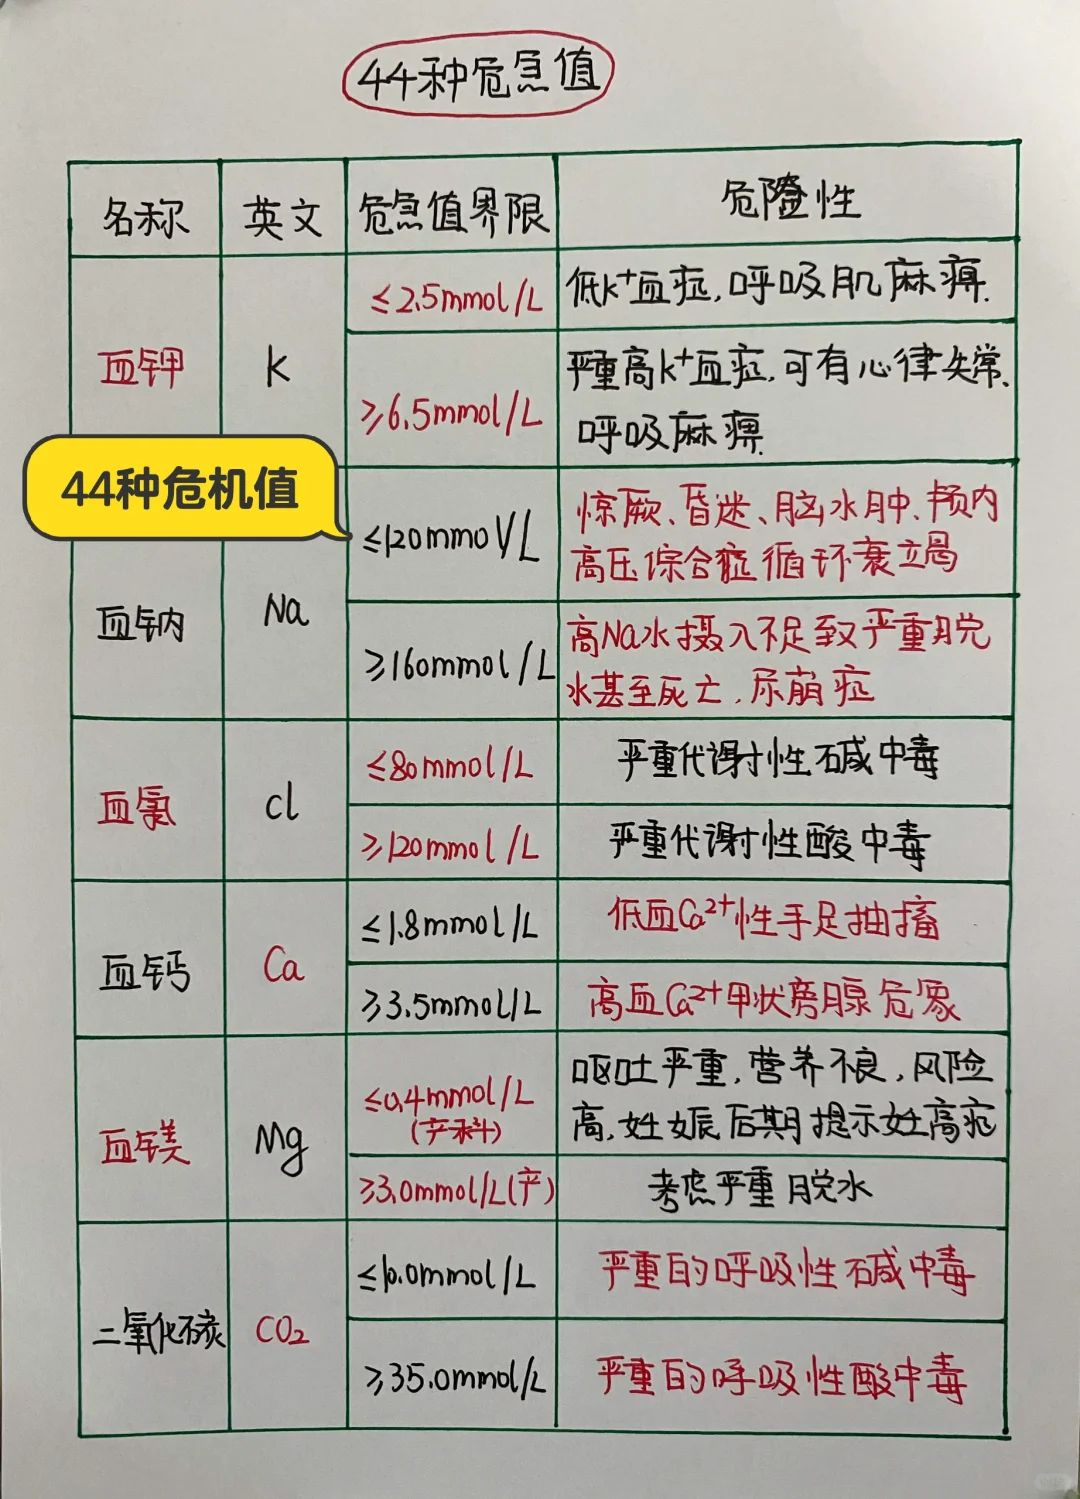 44种危急值
名称 英文 危急值界限 危险性
血钾 K ≤2.5mmol/L 低k⁺血症,呼吸肌麻痹.
≥6.5mmol/L 严重高k⁺血症,可有心律失常.
呼吸麻痹
44种危机值
血钠 Na ≤120mmol/L 惊厥、昏迷、脑水肿、颅内
高压综合症循环衰竭
≥160mmol/L 高Na水摄入不足致严重脱
水甚至死亡,尿崩症
血氯 cl ≤80mmol/L 严重代谢性碱中毒
≥120mmol/L 严重代谢性酸中毒
血钙 Ca ≤1.8mmol/L 低血Ca²⁺性手足抽搐
≥3.5mmol/L 高血Ca²⁺甲状旁腺危象
血镁 Mg ≤0.4mmol/L 呕吐严重,营养不良,风险
(产科) 高,妊娠后期提示妊高症
≥3.0mmol/L(产) 考虑严重脱水
二氧化碳 CO₂ ≤10.0mmol/L 严重的呼吸性碱中毒
≥35.0mmol/L 严重的呼吸性酸中毒